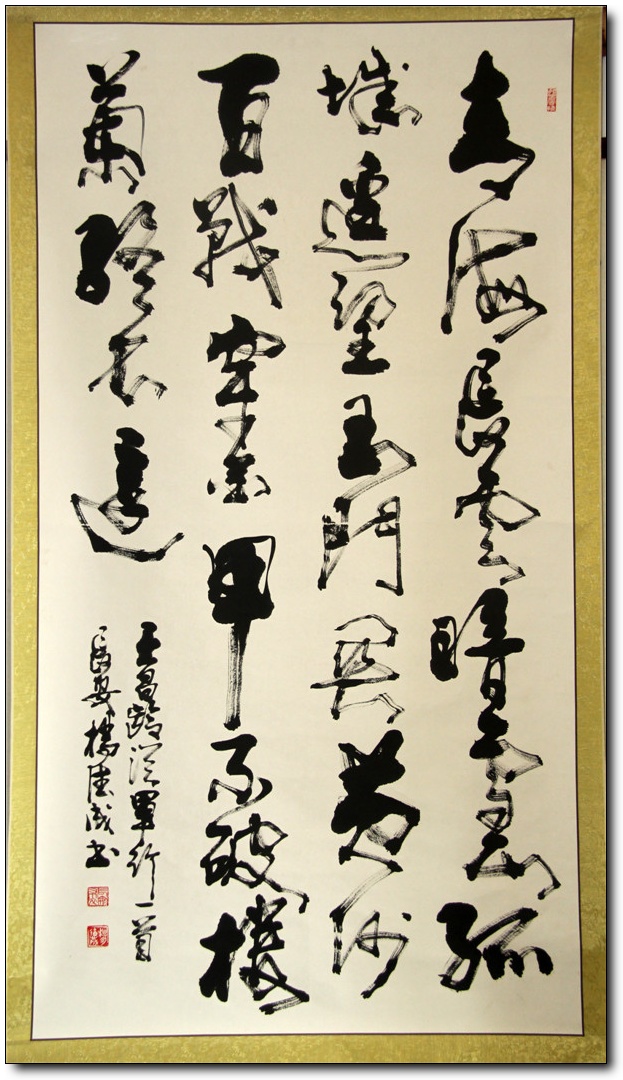 青海長雲暗雪山孤
城遙望玉門關黃沙
百戰穿金甲不破樓
蘭終不還
王昌齡從軍行一首
長安成書